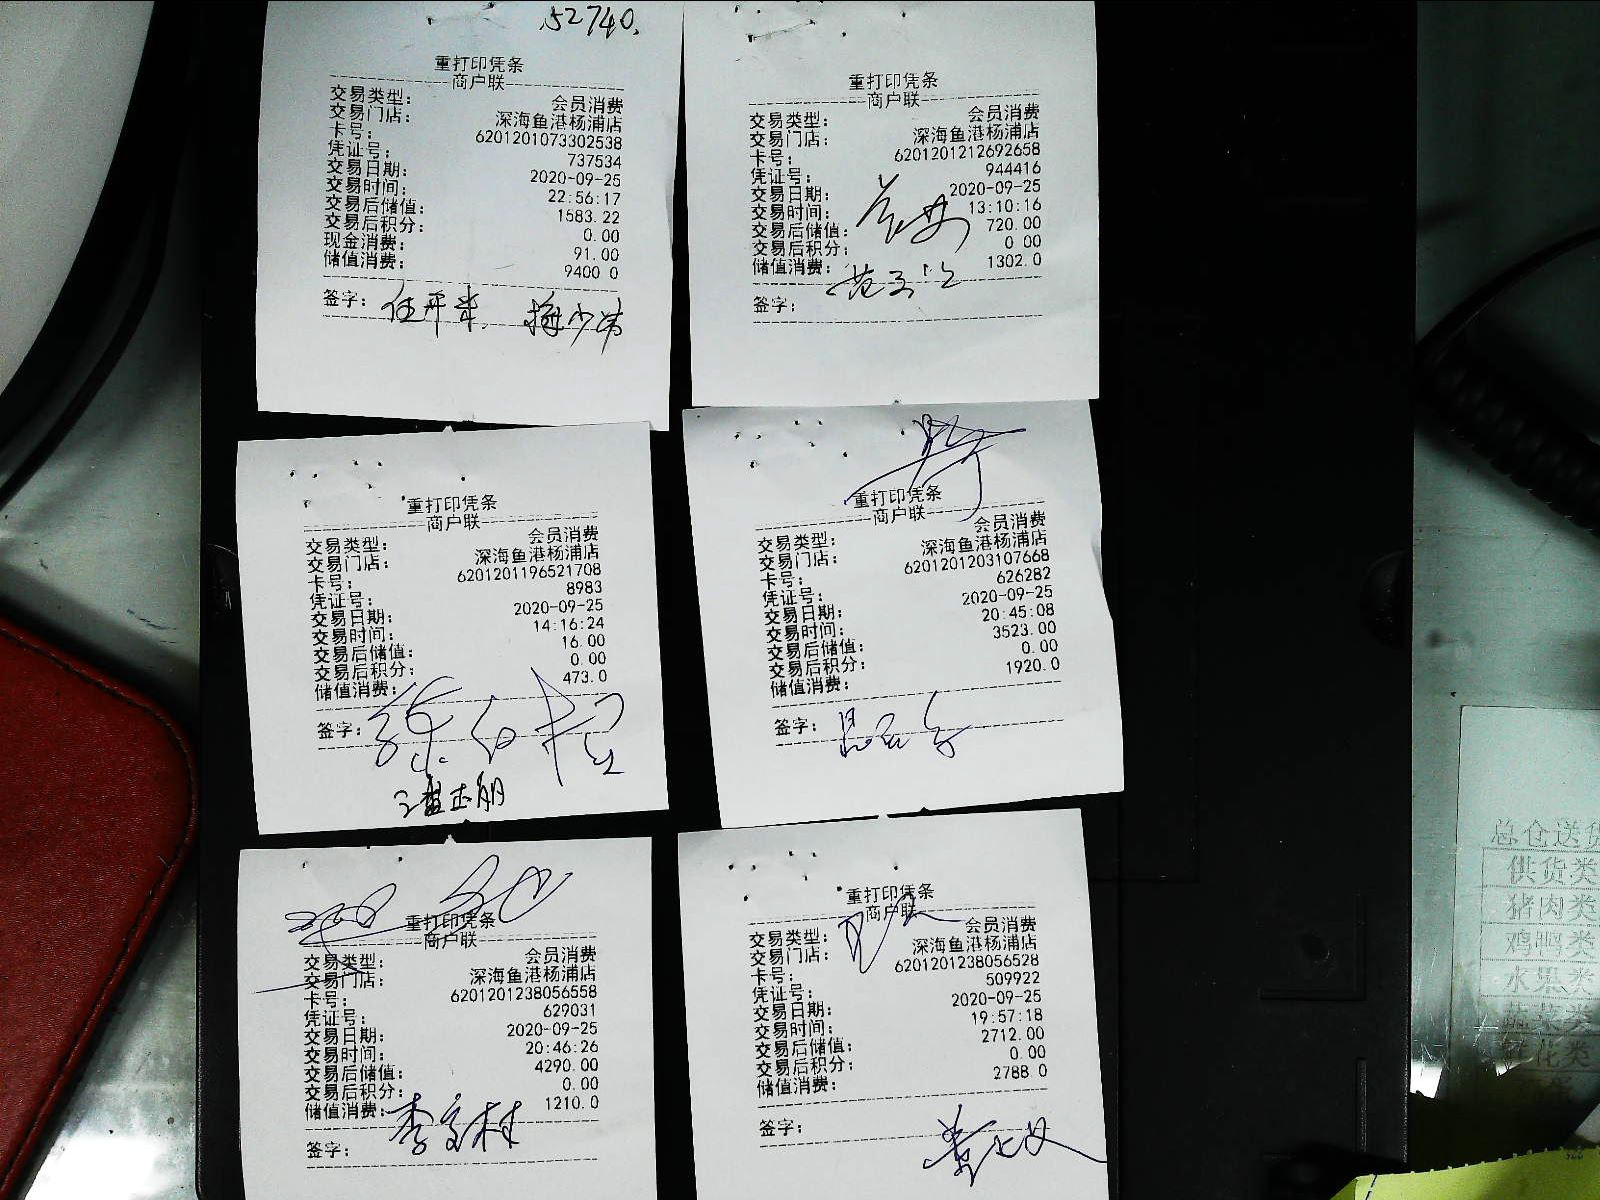 52740.
重打印凭条
商户联
交易类型： 会员消费
交易门店： 深海鱼港杨浦店
卡号： 6201201073302538
凭证号： 737534
交易日期： 2020-09-25
交易时间： 22:56:17
交易后储值： 1583.22
交易后积分： 0.00
现金消费： 91.00
储值消费： 9400.0
签字：
重打印凭条
商户联
交易类型： 会员消费
交易门店： 深海鱼港杨浦店
卡号： 6201201212692658
凭证号： 944416
交易日期： 2020-09-25
交易时间： 13:10:16
交易后储值： 720.00
交易后积分： 0.00
储值消费： 1302.0
签字：
重打印凭条
商户联
交易类型： 会员消费
交易门店： 深海鱼港杨浦店
卡号： 6201201196521708
凭证号： 8983
交易日期： 2020-09-25
交易时间： 14:16:24
交易后储值： 16.00
交易后积分： 0.00
储值消费： 473.0
签字：
重打印凭条
商户联
交易类型： 会员消费
交易门店： 深海鱼港杨浦店
卡号： 6201201203107668
凭证号： 626282
交易日期： 2020-09-25
交易时间： 20:45:08
交易后储值： 3523.00
交易后积分： 0.00
储值消费： 1920.0
签字：
重打印凭条
商户联
交易类型： 会员消费
交易门店： 深海鱼港杨浦店
卡号： 6201201238056558
凭证号： 629031
交易日期： 2020-09-25
交易时间： 20:46:26
交易后储值： 4290.00
交易后积分： 0.00
储值消费： 1210.0
签字： 李文桂
重打印凭条
商户联
交易类型： 会员消费
交易门店： 深海鱼港杨浦店
卡号： 6201201238056528
凭证号： 509922
交易日期： 2020-09-25
交易时间： 19:57:18
交易后储值： 2712.00
交易后积分： 0.00
储值消费： 2788.0
签字：
总仓送货
供货类
猪肉类
鸡鸭类
水果类
蔬菜类
鲜花类